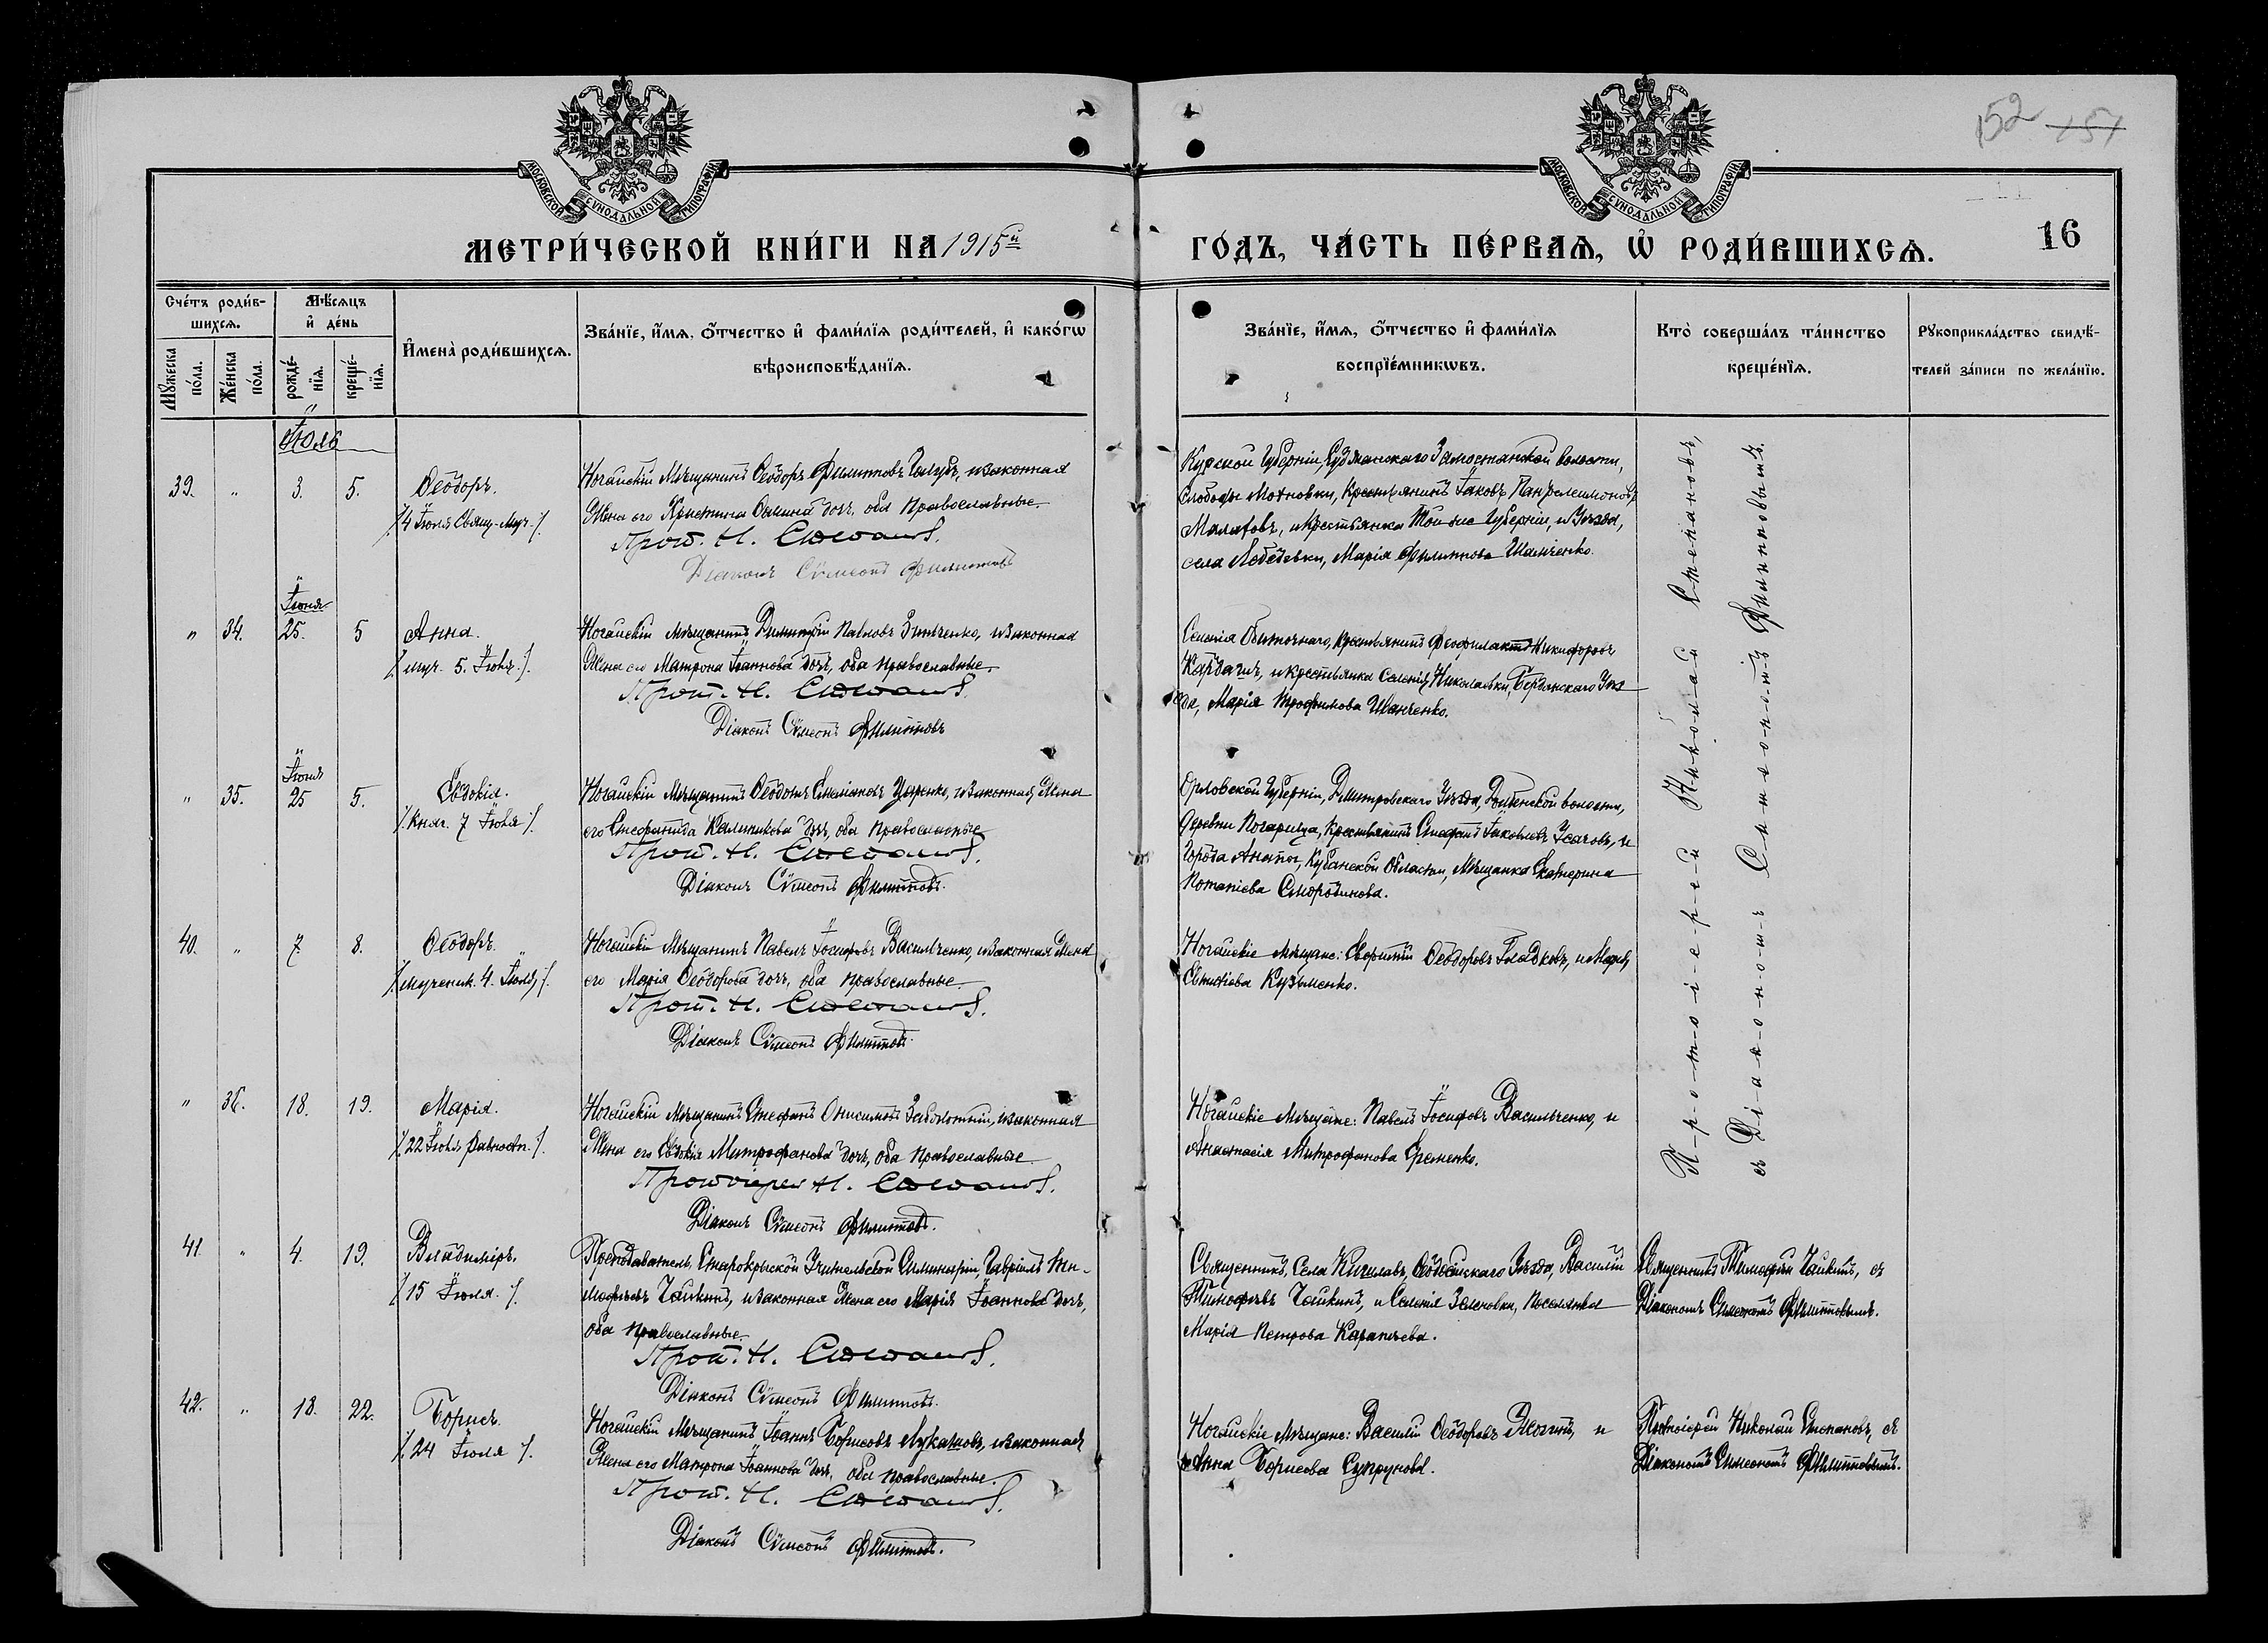 152 151
МОСКОВСКОЙ СѴНОДАЛЬНОЙ ТИПОГРАФІИ
МОСКОВСКОЙ СѴНОДАЛЬНОЙ ТИПОГРАФІИ
МЕТРИ́ЧЕСКОЙ КНИ́ГИ НА 1915й
ГО́ДЪ, ЧА́СТЬ ПЕ́РВАѦ, Ѡ҆ РОДИ́ВШИХСѦ.
16
Сче́тъ роди́в-
шихсѧ.
Мꙋ́жеска по́ла.
Же́нска по́ла.
Мѣ́сѧцъ
и҆ де́нь
рожде́-
нїѧ.
креще́-
нїѧ.
И҆мена̀ роди́вшихсѧ.
Зва́нїе, и҆́мѧ, ѻ҆́тчество и҆ фами́лїѧ роди́телей, и҆ како́гѡ
вѣроисповѣ́данїѧ.
Зва́нїе, и҆́мѧ, ѻ҆́тчество и҆ фами́лїѧ
воспрїе́мникѡвъ.
Кто̀ соверша́лъ та́инство
креще́нїѧ.
Рꙋкоприкла́дство свидѣ́-
телей за́писи по жела́нїю.
Іюль
39. " 3. 5. Ѳеодоръ.
/4 Іюля Свящ-Муч./
Ногайскій Мѣщанинъ Ѳеодоръ Филипповъ Голубъ, и законная
Жена его Христина дочь, оба Православные.
Прот. Н. Степановъ.
Діаконъ Сѵмеонъ Филипповъ
Курской Губерніи, Суджанскаго Замостянской волости,
Слободы Махновки, Крестьянинъ Іаковъ Пантелеимоновъ
и Крестьянка Той же Губерніи, и Уѣзда,
села Лебедевки, Марія Филиппова
" 34. Іюня 25. 5 Анна.
/муч. 5. Іюля./
Ногайскій мѣщанинъ Димитрій Павловъ Зинченко, и законная
Жена его Матрона Іоаннова дочь, оба православные.
Прот. Н. Степановъ.
Діаконъ Сѵмеонъ Филипповъ
Селенія Обиточнаго, Крестьянинъ Ѳеофилактъ Никифоровъ
и крестьянка Селенія Николаевки, Бердянскаго Уѣз
да, Марія Трофимова Иванченко.
" 35. Іюня 25 5. Евдокія.
/Княг. 7 Іюля/.
Ногайскій Мѣщанинъ Царенко, и законная Жена
его Стефанида дочь, оба православные
Прот. Н. Степановъ.
Діаконъ Сѵмеонъ Филипповъ.
Орловской Губерніи, Дмитровскаго Уѣзда, волости,
Деревни Погарища, Крестьянинъ Стефанъ Іаковлевъ Усачовъ, и
Города Анапы, Кубанской Области, Мѣщанка Екатерина
Потапіева Смородинова.
40. " 7. 8. Ѳеодоръ.
/мученик. 4. Іюля/.
Ногайскій Мѣщанинъ Павелъ Іосифовъ Васильченко, и законная Жена
его Марія Ѳеодорова дочь, оба православные.
Прот. Н. Степановъ.
Діаконъ Сѵмеонъ Филипповъ
Ногайскіе мѣщане: Ѳеодоровъ Гладковъ, и Марія
Кузьменко.
" 36. 18. 19. Марія.
/22 Іюля Равноап./.
Ногайскій Мѣщанинъ Стефанъ Онисимовъ Заболотній, и законная
Жена его Евдокія Митрофанова дочь, оба Православные
Протоіерей Н. Степановъ.
Діаконъ Сѵмеонъ Филипповъ.
Ногайскіе Мѣщане: Павелъ Іосифовъ Васильченко, и
Анастасія Митрофанова Еременко.
Протоіерей Николай Степановъ,
съ Діакономъ Симеономъ Филипповымъ.
41 " 4. 19. Владиміръ.
/15 Іюля./
Преподаватель, Старокрымской Учительской Семинаріи, Гавріилъ Ти-
мофѣевъ Чайкинъ, и законная Жена его Марія Іоаннова дочь,
оба православные.
Прот. Н. Степановъ.
Діаконъ Сѵмеонъ Филипповъ.
Священникъ, Села Ѳеодосійскаго Уѣзда, Василій
Тимофѣевъ Чайкинъ, и Селенія Зеленовки, Поселянка
Марія Петрова
Священникъ Тимофей Чайкинъ, съ
Діакономъ Симеономъ Филипповымъ.
42. " 18. 22. Борисъ.
/24 Іюля/.
Ногайскій Мѣщанинъ Іоаннъ Борисовъ Лукашовъ, и законная
Жена его Матрона Іоаннова дочь, оба православные.
Прот. Н. Степановъ.
Діаконъ Сѵмеонъ Филипповъ.
Ногайскіе Мѣщане: Василій Ѳеодоровъ и
Анна Борисова Супрунова.
Протоіерей Николай Степановъ, съ
Діакономъ Симеономъ Филипповымъ.